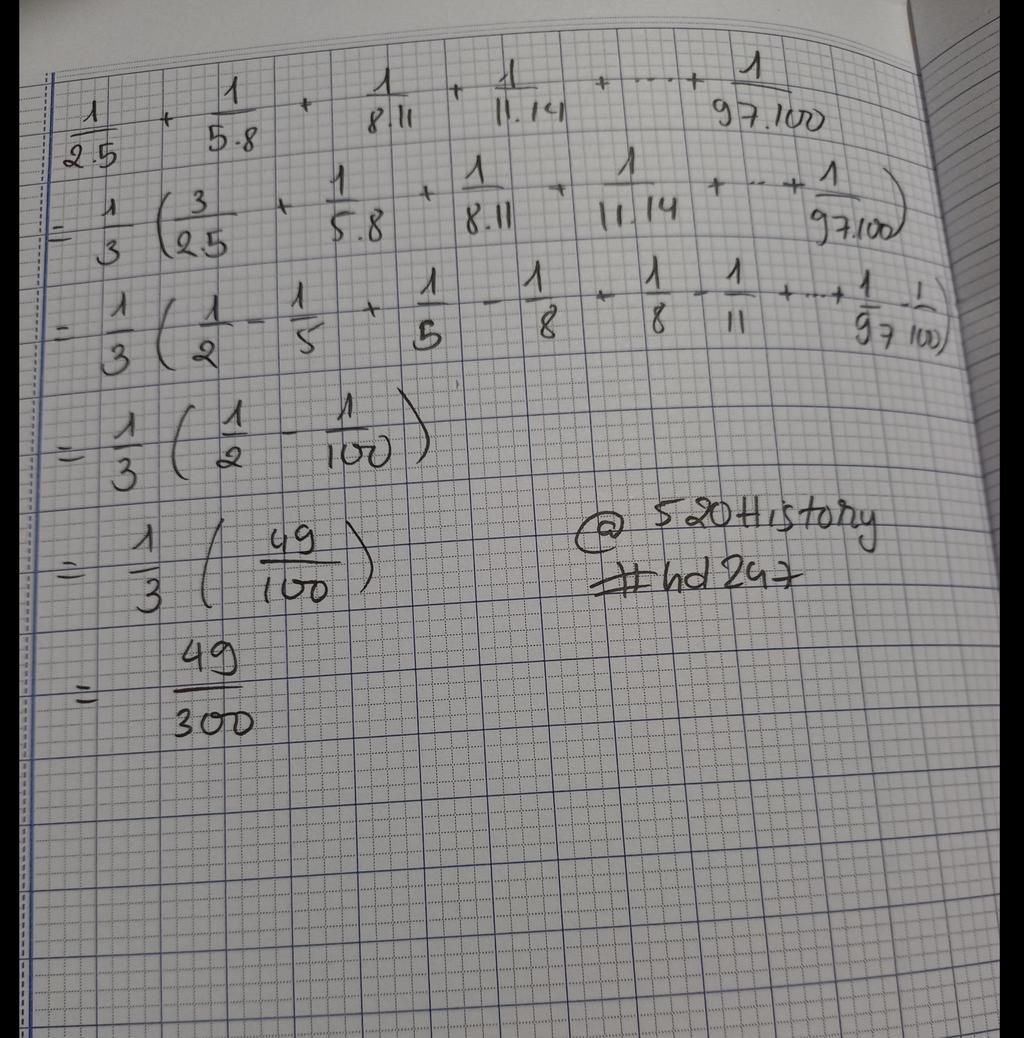 1/2.5 + 1/5.8 + 1/8.11 + 1/11.14 + ... + 1/97.100
= 1/3 (3/2.5 + 1/5.8 + 1/8.11 + 1/11.14 + ... + 1/97.100)
= 1/3 (1/2 - 1/5 + 1/5 - 1/8 + 1/8 - 1/11 + ... + 1/97 - 1/100)
= 1/3 (1/2 - 1/100)
= 1/3 (49/100)
@ 520History
#hd247
= 49/300